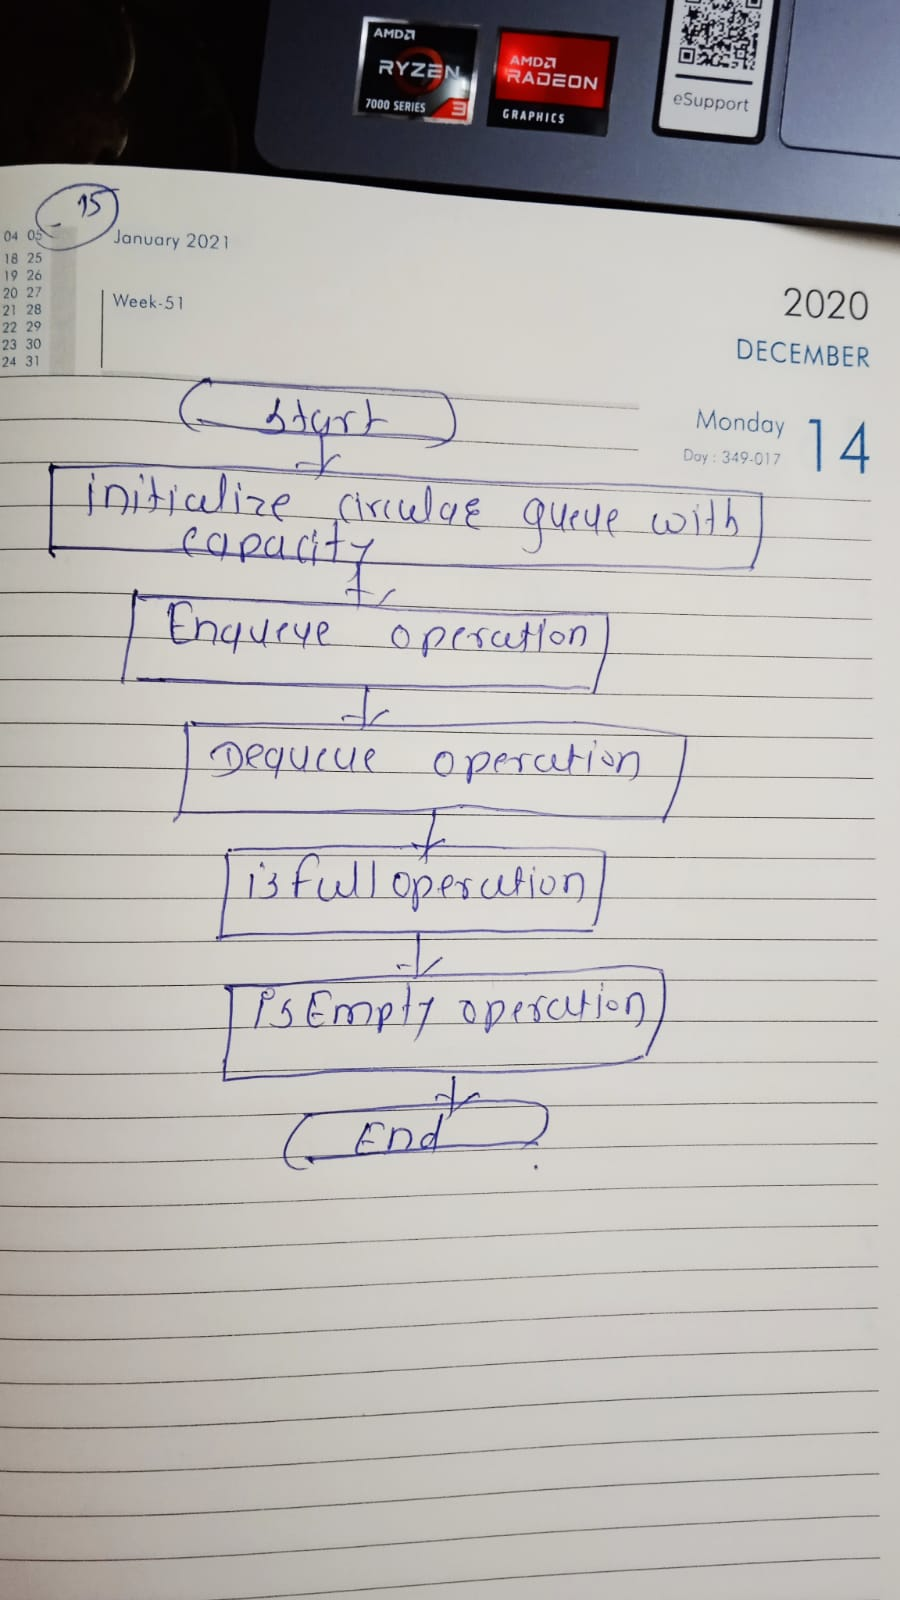 AMD
RYZEN
7000 SERIES 3
AMD
RADEON
GRAPHICS
eSupport
15
04 05
January 2021
18 25
19 26
20 27
21 28
22 29
23 30
24 31
Week-51
2020
DECEMBER
Monday 14
Day : 349-017
Start
initialize circular queue with
capacity
Enqueue operation
Dequeue operation
isfull operation
isEmpty operation
End